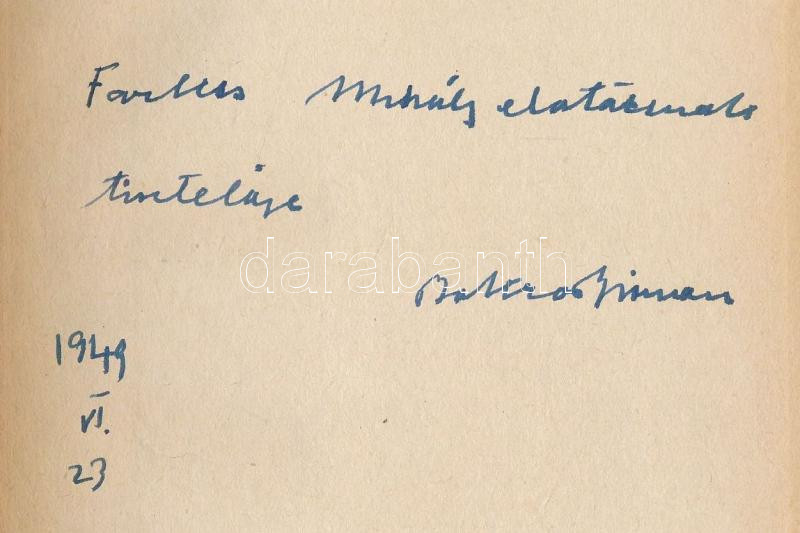 Farkas Mihály elvtársnak
tisztelője
darabanth
Bokros Birman
1949
VI.
23